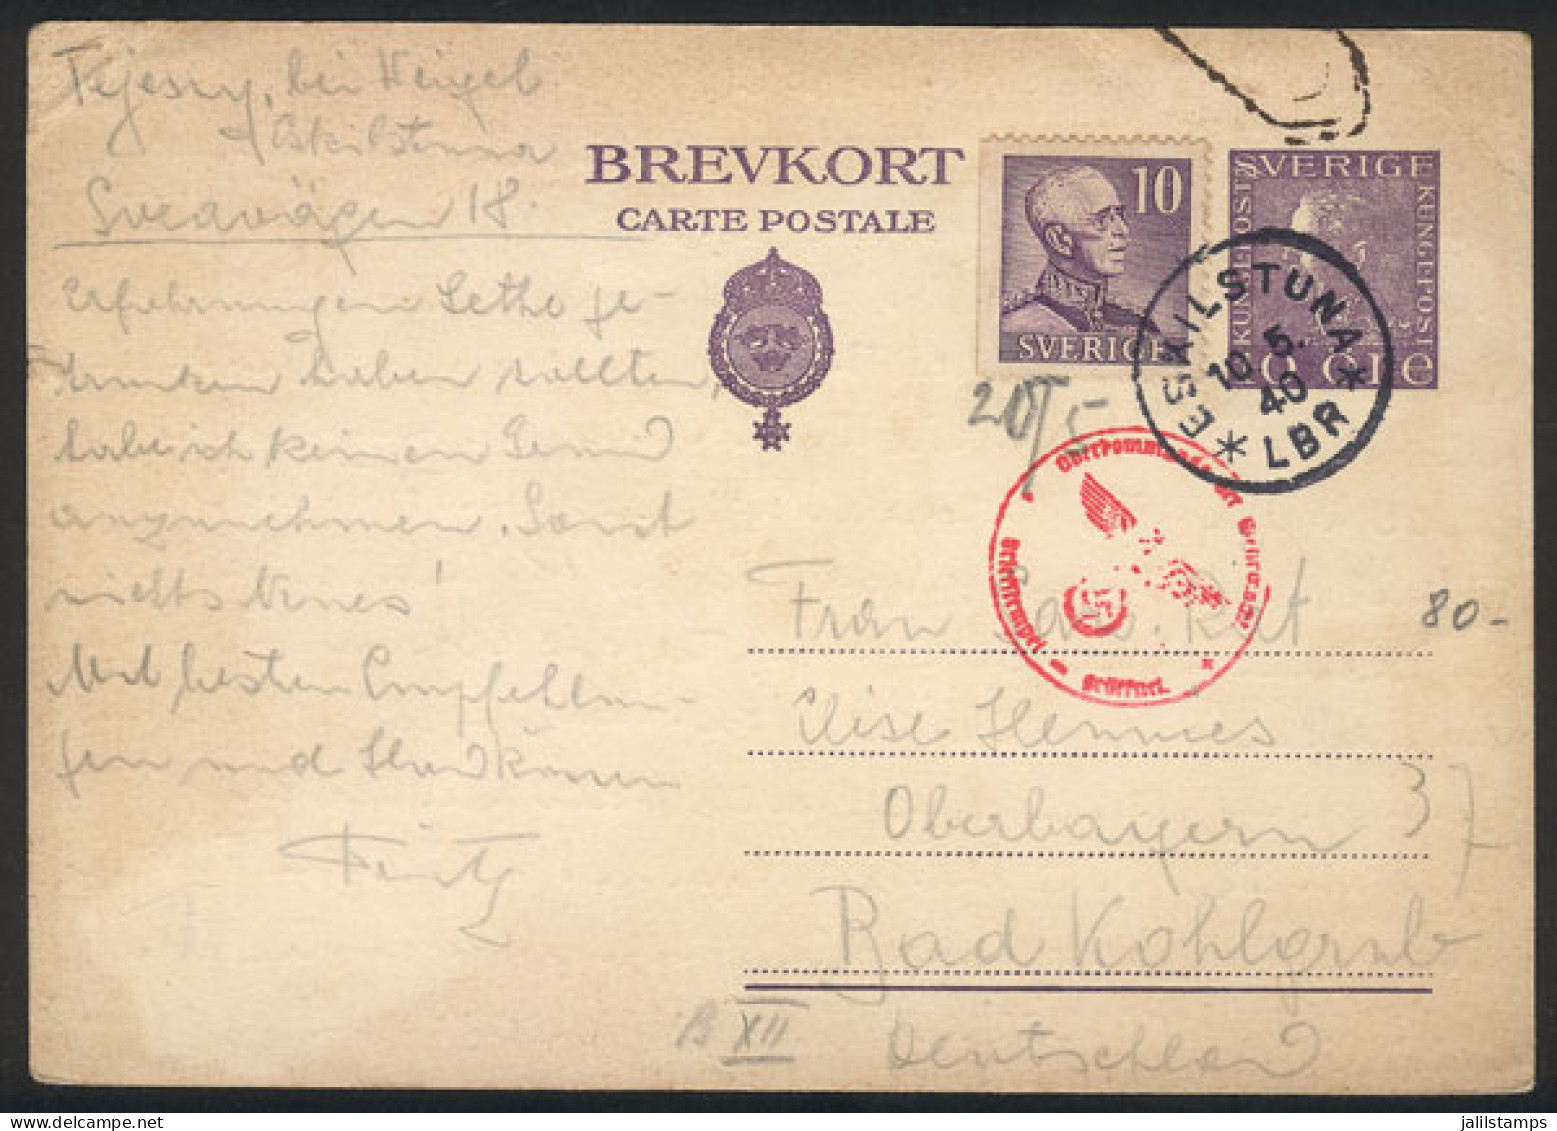 bei Weigel
Eskilstuna
Sveavägen 18.
Erfahrungen Lethe ge-
trunken haben sollten,
habe ich keinen Grund
anzunehmen. Sonst
nichts Neues!
Mit besten Empfehlun-
gen und Handküssen
Fritz
BREVKORT
CARTE POSTALE
10
SVERIGE
SVERIGE
KUNGL POST
KUNGL POST
10 ÖRE
ESKILSTUNA
10 5.
40
* LBR *
Oberkommando der Wehrmacht
Briefstempel
Geöffnet.
Frau Rat
Elise Hemmes
Oberbayern
Bad Kohlgrub
Deutschland
80-
B XII
jalilstamps